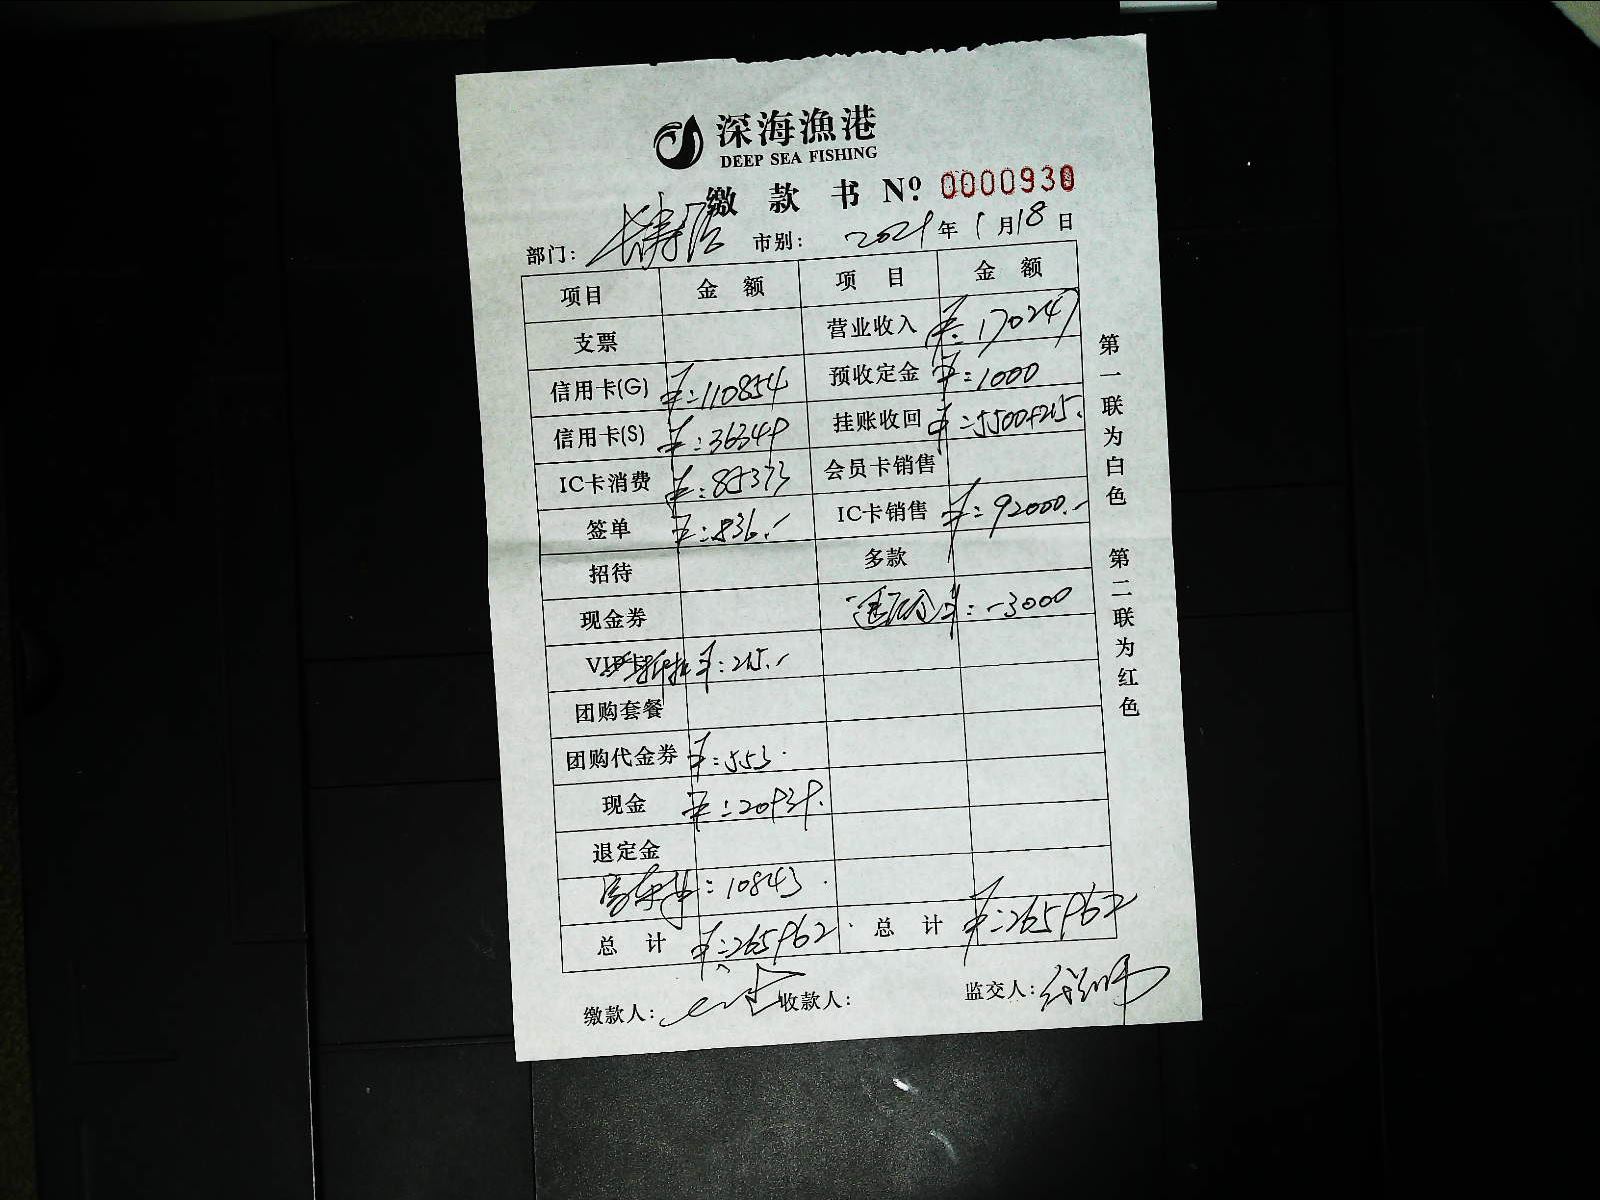 深海漁港
DEEP SEA FISHING
缴款书 Nº 0000930
部门: 市别: 2021年1月18日
项目 金额 项目 金额
支票 营业收入 ¥:170247
信用卡(G) ¥:110854 预收定金 ¥:1000
信用卡(S) ¥:36349 挂账收回 ¥:5500+215.
IC卡消费 ¥:85373 会员卡销售
签单 ¥:836.- IC卡销售 ¥:92000.-
招待 多款
现金券 ¥:-3000
VIP ¥:215.-
团购套餐
团购代金券 ¥:553.
现金 ¥:20939.
退定金
¥:10843.
总计 ¥:265962. 总计 ¥:265962
缴款人: 收款人: 监交人:
第一联为白色 第二联为红色